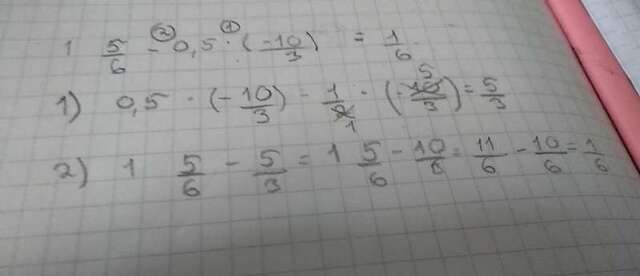 1 5/6 - 0,5 · (-10/3) = 1/6
1) 0,5 · (-10/3) - 1/2 1 · (-10/3) 5 = 5/3
2) 1 5/6 - 5/3 = 1 5/6 - 10/6 = 11/6 - 10/6 = 1/6